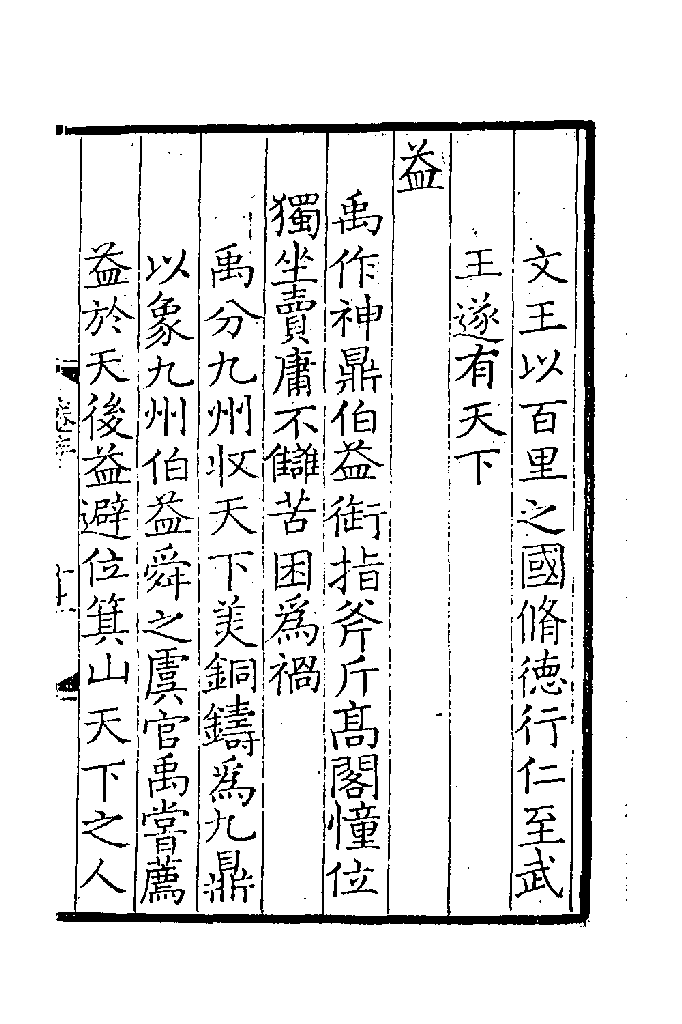 文王以百里之國脩德行仁至武
王遂有天下
益
禹作神鼎伯益銜指斧斤高閣憧位
獨坐賣庸不讎苦困爲禍
禹分九州收天下美銅鑄爲九鼎
以象九州伯益舜之虞官禹嘗薦
益於天後益避位箕山天下之人